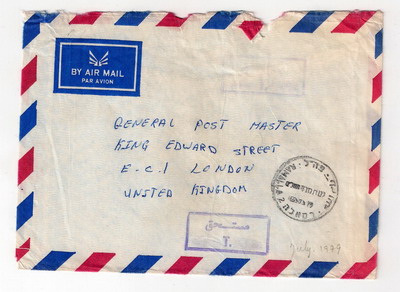 BY AIR MAIL
PAR AVION
GENERAL POST MASTER
KING EDWARD STREET
E.C.1 LONDON
UNITED KINGDOM
RAMALLA 2
مستحق
T.
July 1979